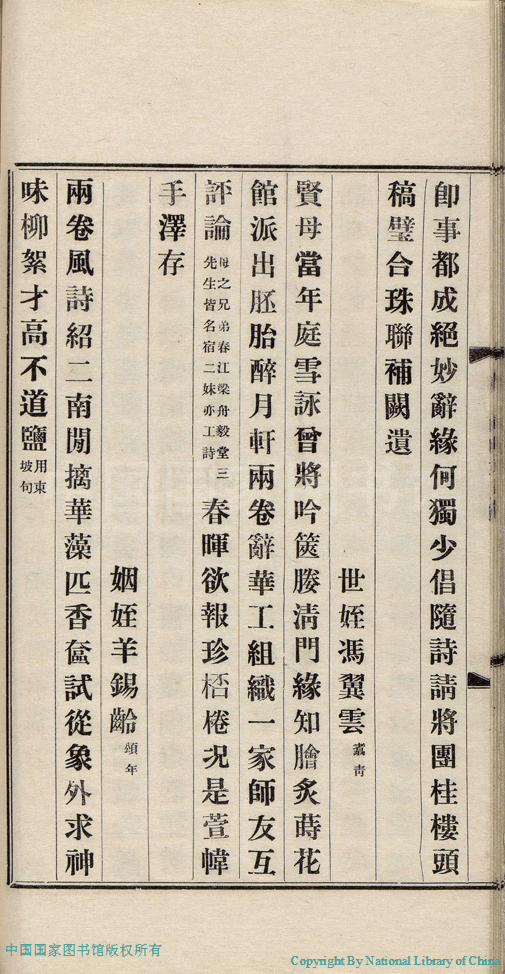 卽事都成絕妙辭緣何獨少倡隨詩請將團桂樓頭
稿璧合珠聯補闕遺
世姪馮翼雲
賢母當年庭雪詠曾將吟篋媵淸門緣知膾炙蒔花
館派出胚胎醉月軒兩卷辭華工組織一家師友互
評論母之兄弟春江梁舟毅堂三先生皆名宿二妹亦工詩春暉欲報珍桮棬況是萱幃
手澤存
姻姪羊錫齡頌年
兩卷風詩紹二南閒摛華藻匹香奩試從象外求神
味柳絮才高不道鹽用東坡句
中国国家图书馆版权所有
Copyright By National Library of China